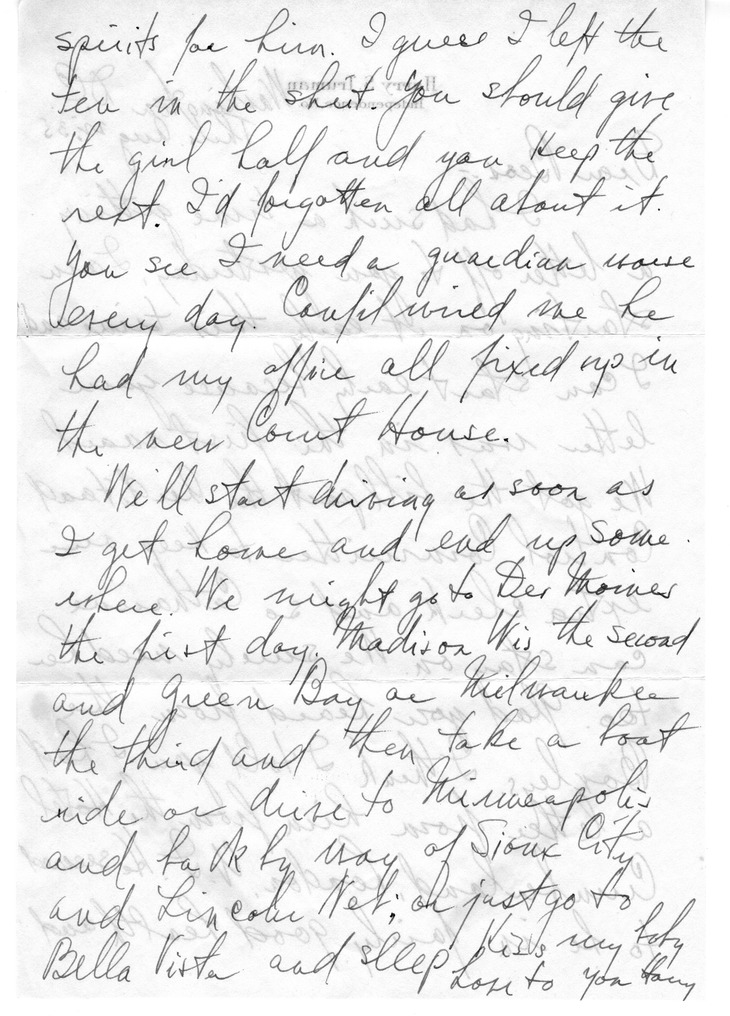 spirits for him. I guess I left the
ten in the shirt. You should give
the girl half and you keep the
rest. I'd forgotten all about it.
You see I need a guardian worse
every day. Canfil wired me he
had my office all fixed up in
the new Court House.
We'll start driving as soon as
I get home and end up some
where. We might go to Des Moines
the first day. Madison Wis the second
and Green Bay or Milwaukee
the third and then take a boat
ride or drive to Minneapolis
and back by way of Sioux City
and Lincoln Neb; or just go to
Bella Vista and sleep Kiss my baby
Love to you Harry